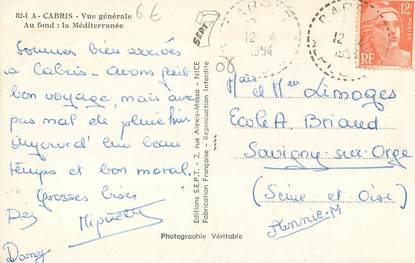 82-1 A - CABRIS - Vue générale
Au fond : la Méditerranée
6€
SEPT
Sommes bien arrivés
à Cabris - avons fait
bon voyage, mais avec
pas mal de pluie
aujourd'hui beau
temps et bon moral.
Grosses bises
Miquette
Editions S.E.P.T. - 2, rue Alexis-Mossa - NICE
Fabrication Française - Reproduction Interdite
Photographie Véritable
06
12 - 4
1954
12 F
RF
et Mme Limoges
Ecole A. Briand
Savigny-sur-Orge
(Seine et Oise)
Annie-M